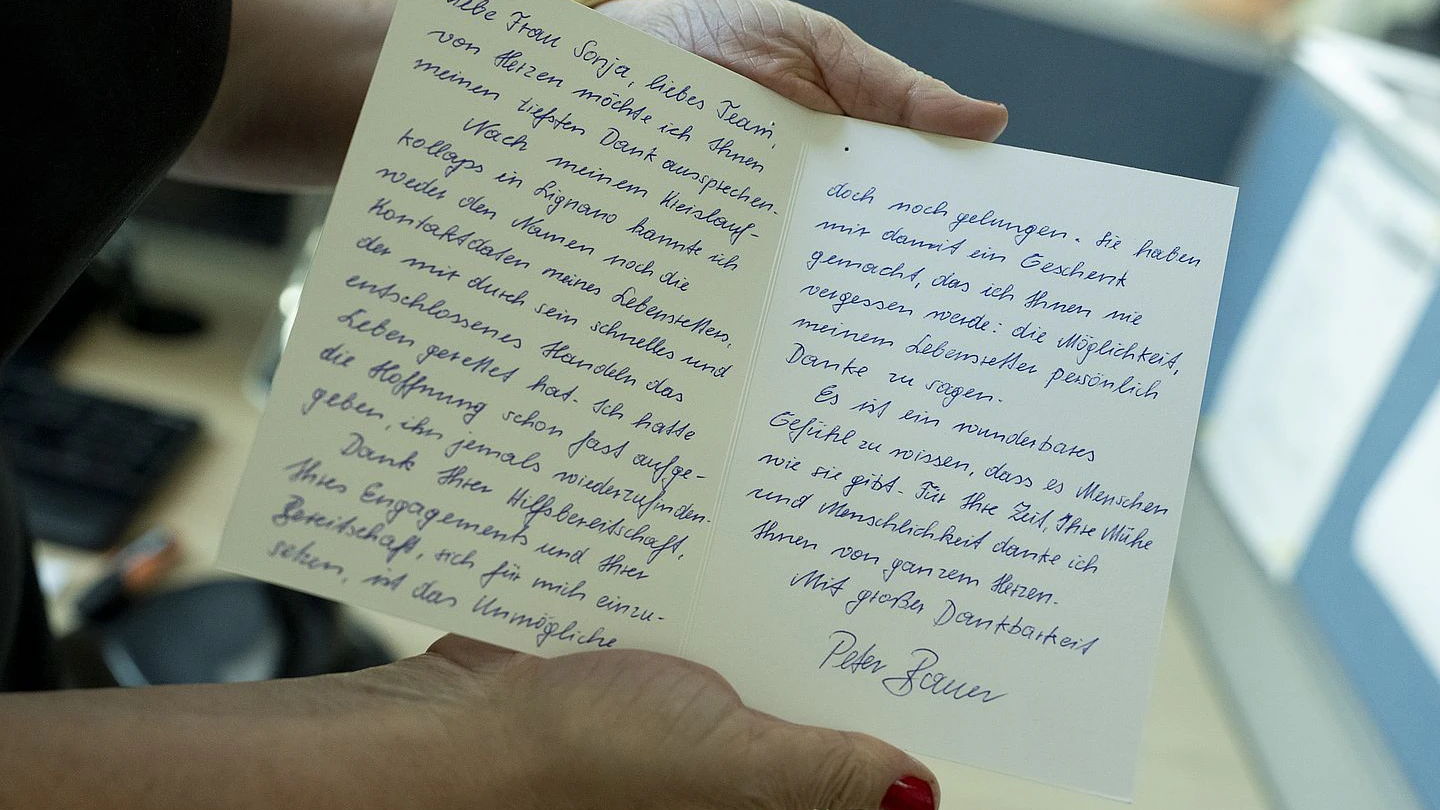 Liebe Frau Sonja, liebes Team,
von Herzen möchte ich Ihnen
meinen tiefsten Dank aussprechen.
Nach meinem Kreislauf-
kollaps in Lignano kannte ich
weder den Namen noch die
Kontaktdaten meines Lebensretters,
der mir durch sein schnelles und
entschlossenes Handeln das
Leben gerettet hat. Ich hatte
die Hoffnung schon fast aufge-
geben, ihn jemals wiederzufinden.
Dank Ihrer Hilfsbereitschaft,
Ihres Engagements und Ihrer
Bereitschaft, sich für mich einzu-
setzen, ist das Unmögliche
doch noch gelungen. Sie haben
mir damit ein Geschenk
gemacht, das ich Ihnen nie
vergessen werde: die Möglichkeit,
meinem Lebensretter persönlich
Danke zu sagen.
Es ist ein wunderbares
Gefühl zu wissen, dass es Menschen
wie sie gibt. Für Ihre Zeit, Ihre Mühe
und Menschlichkeit danke ich
Ihnen von ganzem Herzen.
Mit großer Dankbarkeit
Peter Bauer